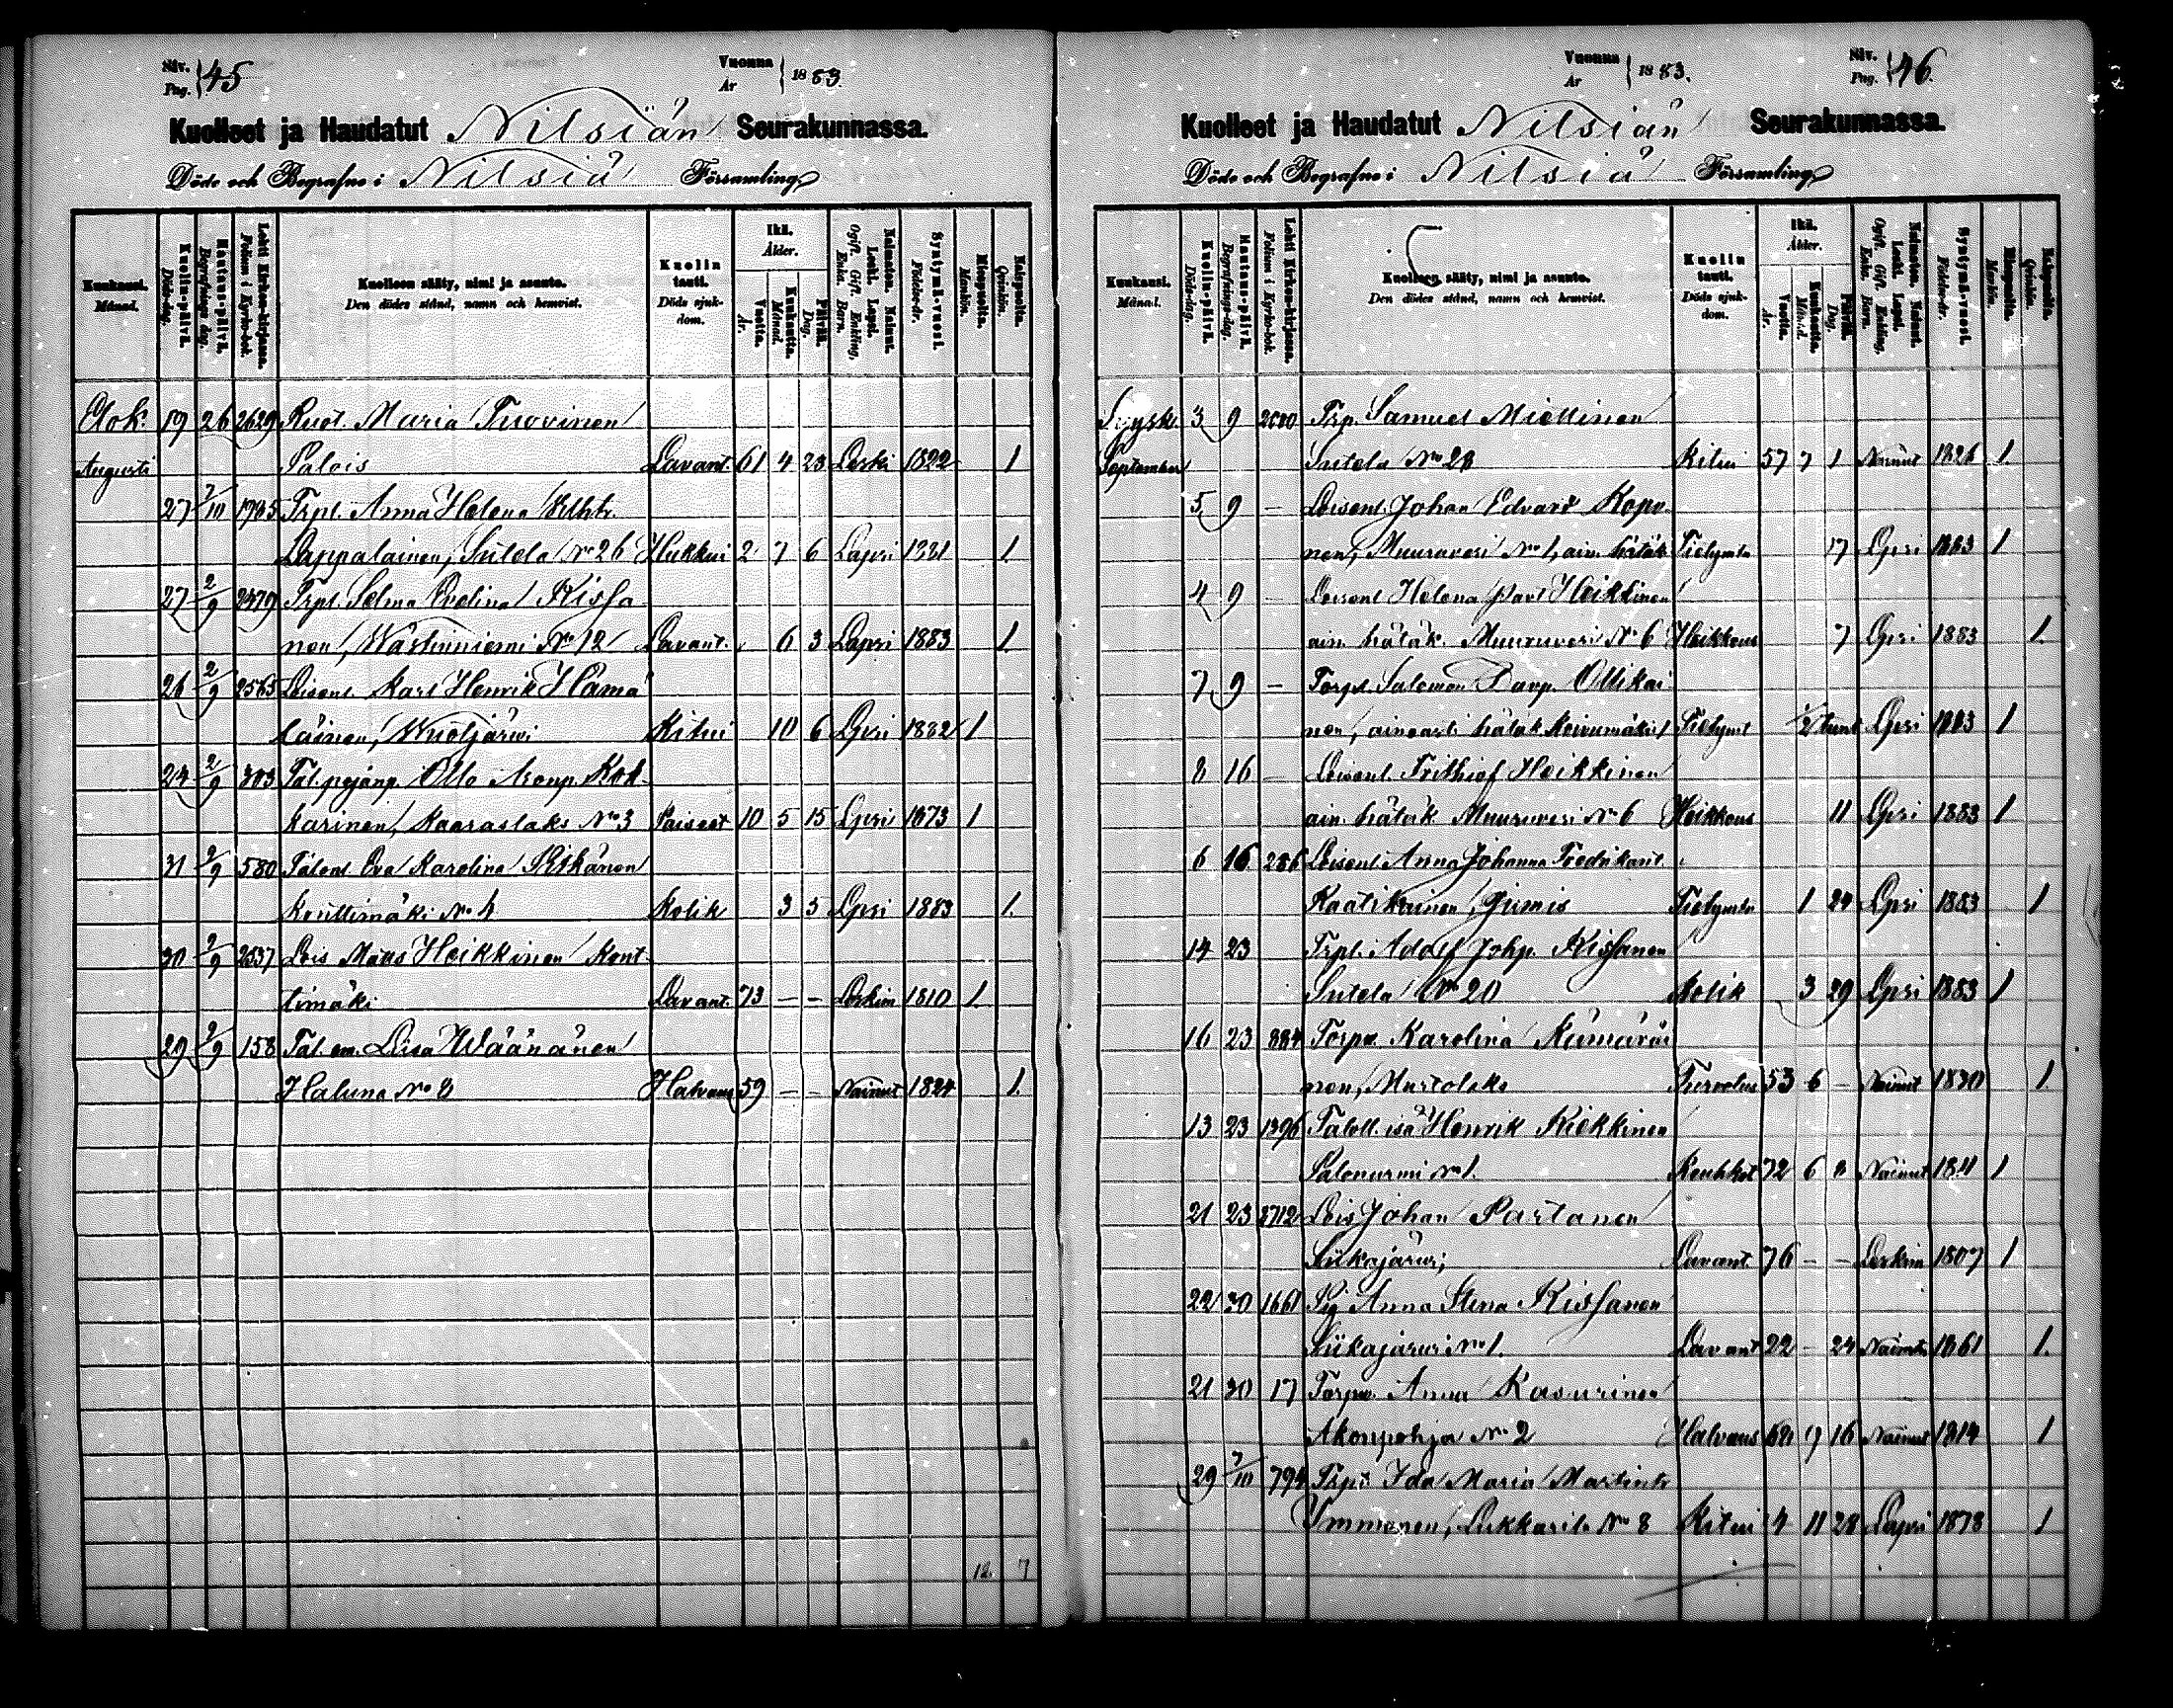 Siv. Pag. 45 Vuonna År 1883.
Kuolleet ja Haudatut Nilsiän Seurakunnassa.
Döde och Begrafne i Nilsiä Församling
Kuukausi. Månad. Kuolin-päivä. Döds-dag. Hautaus-päivä. Begrafnings-dag. Lehti Kirkon-kirjassa. Folium i Kyrko-bok. Kuolleen sääty, nimi ja asunto. Den dödes stånd, namn och hemvist. Kuolin tauti. Döds sjuk-dom. Ikä. Ålder. Vuotta. År. Kuukautta. Månad. Päivää. Dag. Naimaton. Nainut. Leski. Lapsi. Ogift. Gift. Enkling. Enka. Barn. Syntymä-vuosi. Födelse-år. Miespuolta. Mankön. Vaispuolta. Qvinkön.
Elok. 19 26 2629 Ruot. Maria Tuovinen
Augusti Palois Lavant. 61 4 23 Leski 1822 1
27 7/10 1795 Trpt. Anna Helena
Lappalainen, Sutela No 26 Hukkui 2 7 6 Lapsi 1881 1.
27 2/9 2479 Trpt. Selma Evelina Kissa
nen, Wästinniemi No 12 Lavant. 6 3 Lapsi 1883 1.
26 2/9 2565 Loisenl. Karl Henrik Hämä
läinen, Wuotjärwi Kitui 10 6 Lpsi 1882 1
24 2/9 303 Tal. pojanp. Otto Aronp. Kok
karinen, Kaaraslaks No 3 Paiseet 10 5 15 Lpsi 1873 1
31 2/9 580 Talont. Eva Karolina Pitkänen
Konttimäki No 4 Kolik 3 3 Lpsi 1883 1.
30 2/9 2537 Lois Matts Heikkinen Kont
timäki Lavant. 73 – – Leskim 1810 1
29 2/9 158 Tal. em. Lisa Wäänänen
Haluna No 8 Halvaus 59 – – Nainut 1824 1.
12. 7
Vuonna År 1883. Siv. Pag. 46.
Kuolleet ja Haudatut Nilsiän Seurakunnassa.
Döde och Begrafne i Nilsiä Församling
Kuukausi. Månad. Kuolin-päivä. Döds-dag. Hautaus-päivä. Begrafnings-dag. Lehti Kirkon-kirjassa. Folium i Kyrko-bok. Kuolleen sääty, nimi ja asunto. Den dödes stånd, namn och hemvist. Kuolin tauti. Döds sjuk-dom. Ikä. Ålder. Vuotta. År. Kuukautta. Månad. Päivää. Dag. Naimaton. Nainut. Leski. Lapsi. Ogift. Gift. Enkling. Enka. Barn. Syntymä-vuosi. Födelse-år. Miespuolta. Mankön. Vaispuolta. Qvinkön.
Syysk. 3 9 Trp. Samuel Miettinen
September Sutela No 28 Kitui 57 7 1 Nainut 1826 1.
5 9 – Loisenl. Johan Edvard Kopo
nen, Muuruvesi No 1, ain. hätäk Tietymtn 17 Lpsi 1883 1
4 9 – Loisenl Helena Heikkinen
ain. hätäk. Muuruvesi No 6 Heikkous 7 Lpsi 1883 1.
7 9 – Torpl. Salomon Paavp. Ollikai
nen, ainoasti hätäk Tietymt 1/2 tunt Lpsi 1883 1
8 16 – Loisenl. Frithiof Heikkinen
ain. hätäk Muuruvesi No 6 Heikkous 11 Lpsi 1883 1
6 16 286 Loisenl Anna Johanna
Kaatikainen, Jumis Tietymtn 1 24 Lpsi 1883 1
14 23 Trpl. Adolf Johp. Kissanen
Sutela No 20 Kolik 3 29 Lpsi 1883 1
16 23 884 Torpv. Karolina Kumäräi
nen, Murtolaks Turvotus 53 6 – Nainut 1830 1.
13 23 1396 Taloll. isä Henrik Kiekkinen
Palonurmi No 1. Keuhkot 72 6 8 Nainut 1811 1
21 23 3712 Lois Johan Partanen
Siikajärwi, Lavant. 76 – – Leskim 1807 1
22 30 1661 Anna Stina Kissanen
Siikajärwi No 1. Lavant 22 – 24 Naimtn 1861 1.
21 30 17 Torpv. Anna Kasurinen
Akonpohja No 2 Halvaus 9 16 Nainut 1814 1
29 7/10 794 Trpt Ida Maria Martintr
Immonen, Lukkarila No 8 Kitui 4 11 28 Lapsi 1878 1